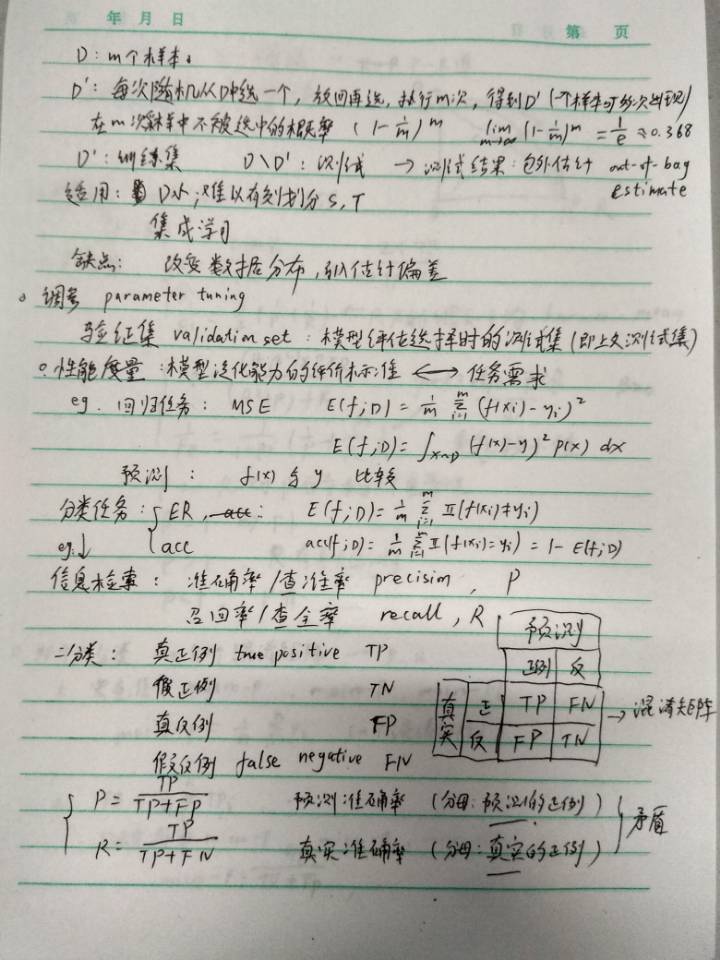 年 月 日 第 页
D：m个样本。
D'：每次随机从D中选一个，放回再选，执行m次，得到D'（一个样本可多次出现）
在m次采样中不被选中的概率 (1-1/m)^m lim m→∞ (1-1/m)^m = 1/e ≈ 0.368
D'：训练集 D\D'：测试 → 测试结果：包外估计 out-of-bag
estimate
适用：D小；难以有效划分S,T
集成学习
缺点：改变数据分布，引入估计偏差
。调参 parameter tuning
验证集 validation set：模型评估选择时的测试集（即上文测试集）
。性能度量：模型泛化能力的评价标准 ←→ 任务需求
eg. 回归任务：MSE E(f;D) = 1/m Σ_{i=1}^{m} (f(xi)-yi)²
E(f;D) = ∫_{x~D} (f(x)-y)² p(x) dx
预测：f(x)与y 比较
分类任务：{ ER, acc: E(f;D) = 1/m Σ_{i=1}^{m} II(f(xi)≠yi)
eg.↓ acc acc(f;D) = 1/m Σ_{i=1}^{m} II(f(xi)=yi) = 1-E(f;D)
信息检索：准确率/查准率 precision, P
召回率/查全率 recall, R
预测
二分类：真正例 true positive TP
正例 反
假正例 TN
真实 正 TP FN → 混淆矩阵
真反例 FP
反 FP TN
假反例 false negative FN
{ P = TP/(TP+FP) 预测准确率（分母：预测的正例） } 矛盾
R = TP/(TP+FN) 真实准确率（分母：真实的正例）